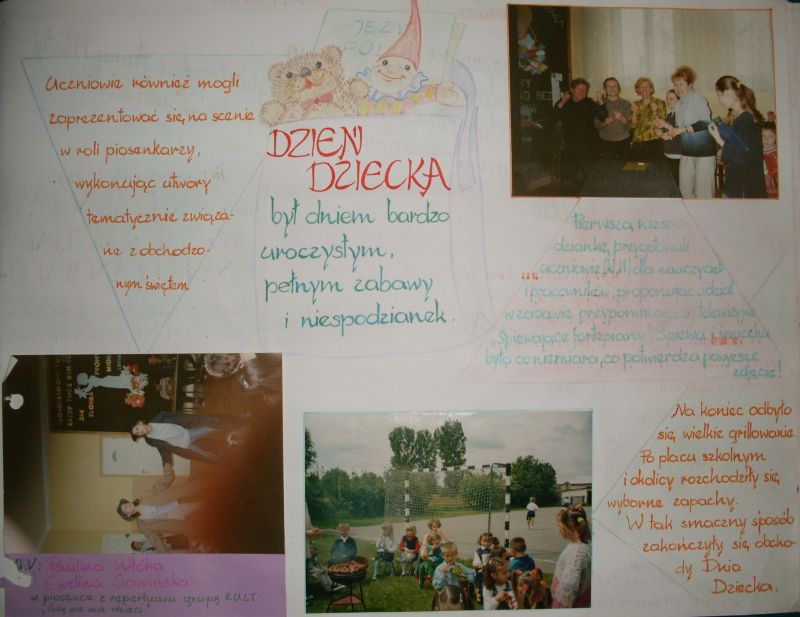 Uczniowie również mogli
zaprezentować się na scenie
w roli piosenkarzy,
wykonując utwory
tematycznie związa-
ne z obchodzo-
nym świętem
JĘZY
POL
DZIEŃ
DZIECKA
był dniem bardzo
uroczystym,
pełnym zabawy
i niespodzianek.
Pierwszą niespo-
dziankę przygotowali
uczniowie dla nauczycieli
i pracowników proponując udział
w zabawie przypominającej telewizyjne
"Śpiewające fortepiany". Śpiewu i śmiechu
było co niemiara, co potwierdza powyższe
zdjęcie!
kl. V: Paulina Wlóka
Ewelina Gawińska
w piosence z repertuaru grupy KULT:
"Gdy nie ma dzieci
Na koniec odbyło
się wielkie grillowanie.
Po placu szkolnym
i okolicy rozchodziły się
wyborne zapachy.
W tak smaczny sposób
zakończyły się obcho-
dy Dnia
Dziecka.